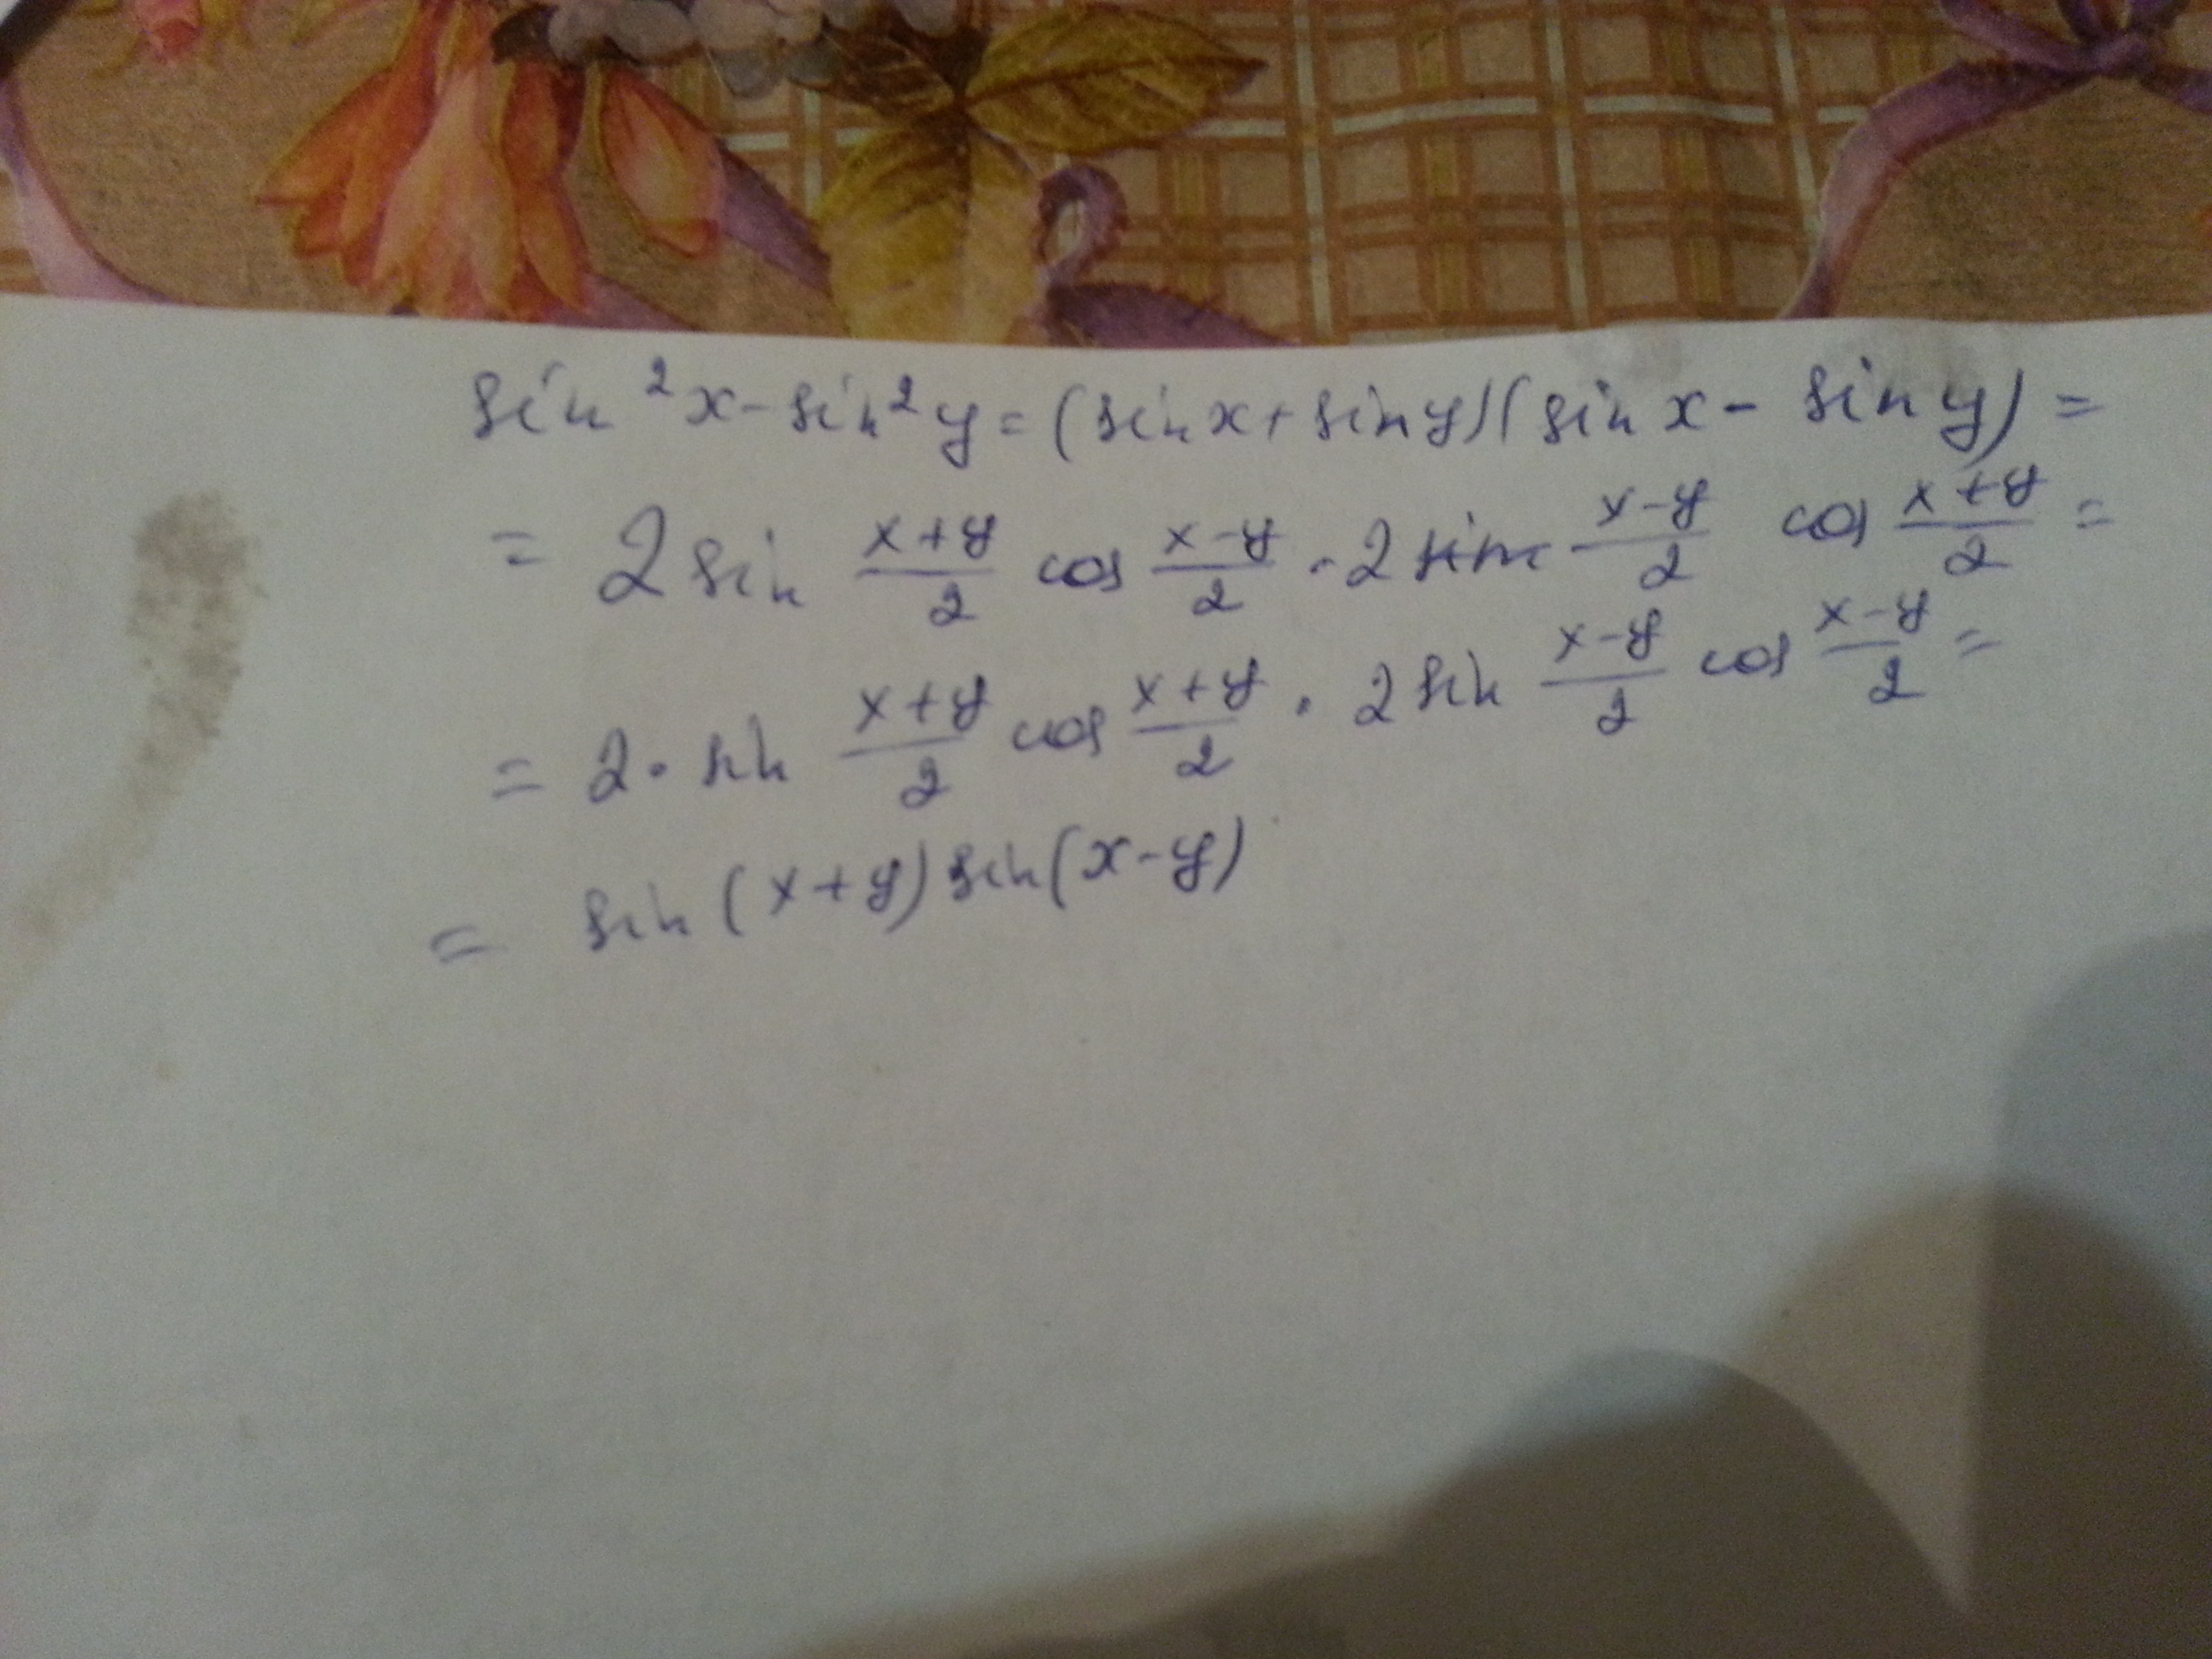 sin²x-sin²y=(sinx+siny)(sinx-siny)=
= 2sin (x+y)/2 cos (x-y)/2 · 2sin (x-y)/2 cos (x+y)/2 =
= 2·sin (x+y)/2 cos (x+y)/2 · 2sin (x-y)/2 cos (x-y)/2 =
= sin(x+y)sin(x-y)